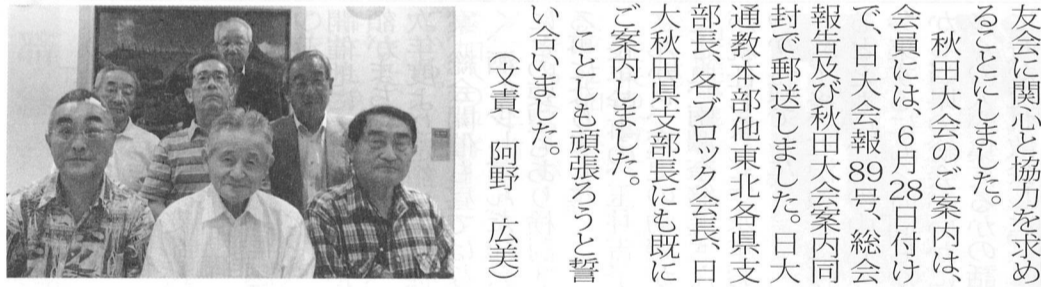 友会に関心と協力を求め
ることにしました。
秋田大会のご案内は、
会員には、6月28日付け
で、日大会報89号、総会
報告及び秋田大会案内同
封で郵送しました。日大
通教本部他東北各県支
部長、各ブロック会長、日
大秋田県支部長にも既に
ご案内しました。
ことしも頑張ろうと誓
い合いました。
(文責 阿野 広美)